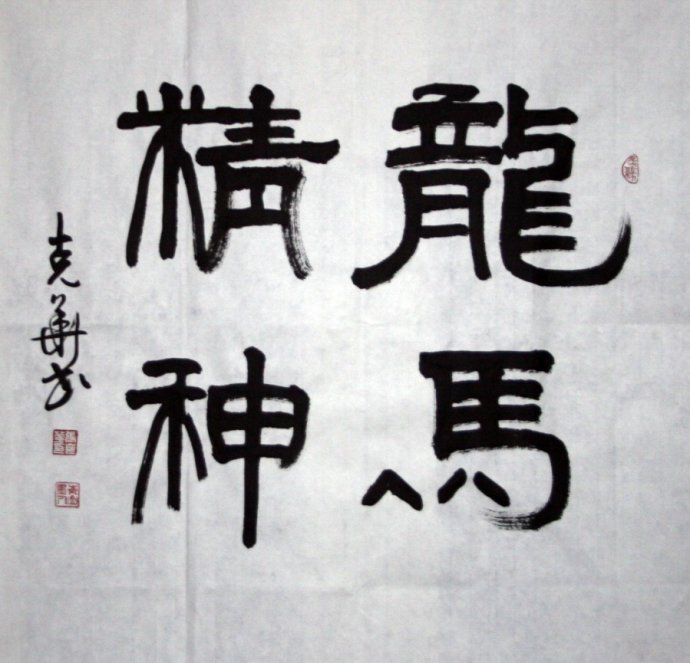 龍馬
精神
克華书